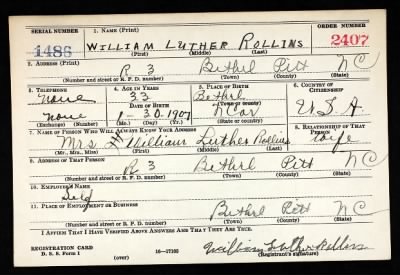 SERIAL NUMBER 1. NAME (Print) ORDER NUMBER
1486 WILLIAM LUTHER ROLLINS 2407
(First) (Middle) (Last)
2. ADDRESS (Print)
R 3 Bethel Pitt N C
(Number and street or R. F. D. number) (Town) (County) (State)
3. TELEPHONE 4. AGE IN YEARS 5. PLACE OF BIRTH 6. COUNTRY OF CITIZENSHIP
none 33 Bethel
DATE OF BIRTH (Town or county)
none 1-30-1907 N Car U S A
(Exchange) (Number) (Mo.) (Day) (Yr.) (State or country)
7. NAME OF PERSON WHO WILL ALWAYS KNOW YOUR ADDRESS 8. RELATIONSHIP OF THAT PERSON
Mrs William Luther Rollins wife
(Mr., Mrs., Miss) (First) (Middle) (Last)
9. ADDRESS OF THAT PERSON
R 3 Bethel Pitt N C
(Number and street or R. F. D. number) (Town) (County) (State)
10. EMPLOYER'S NAME
Self
11. PLACE OF EMPLOYMENT OR BUSINESS
Bethel Pitt N C
(Number and street or R. F. D. number) (Town) (County) (State)
I AFFIRM THAT I HAVE VERIFIED ABOVE ANSWERS AND THAT THEY ARE TRUE.
REGISTRATION CARD
D. S. S. Form 1 (over) 16—17105 William Luther Rollins
(Registrant's signature)